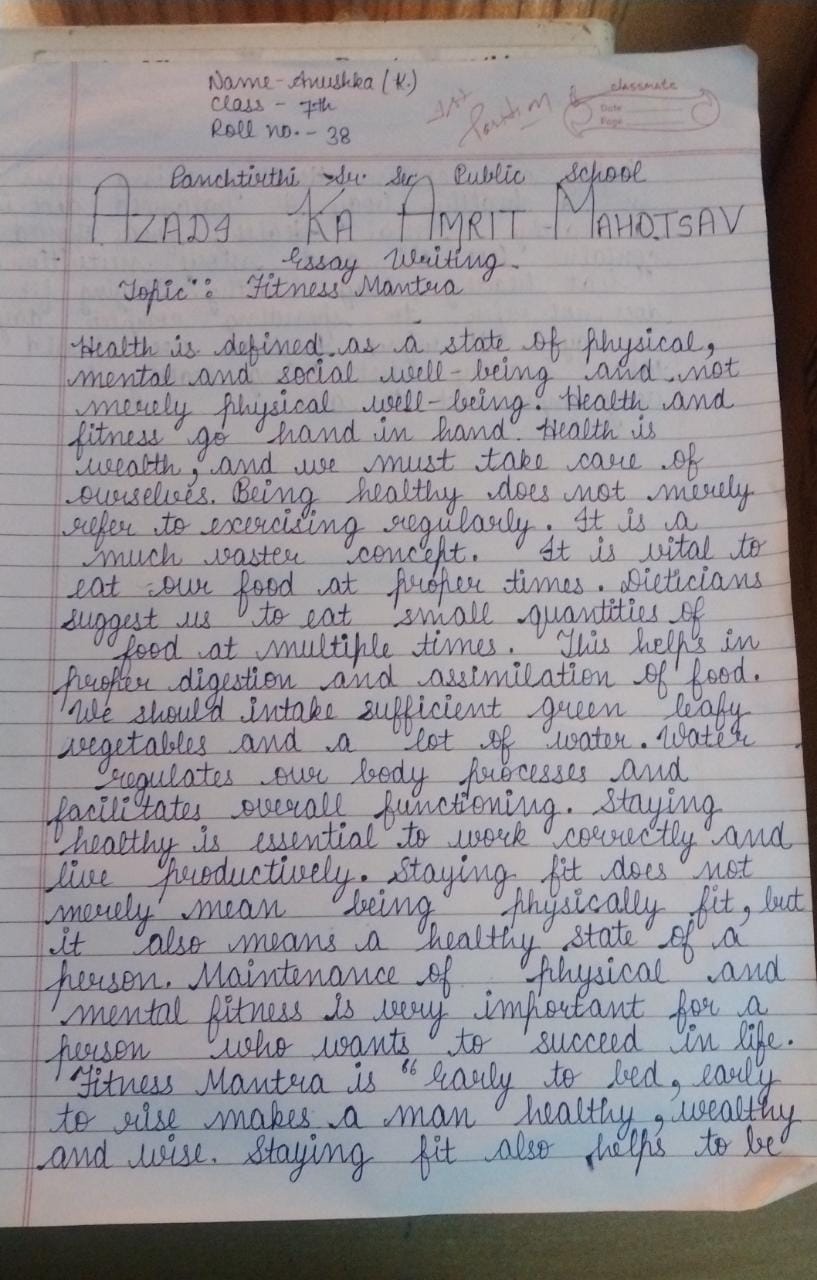 Name - Anushka (K.)
Class - 7th
Roll no. - 38
1st Position
classmate
Date
Page
Panchtirthi Sr. Sec Public School
AZADI KA AMRIT MAHOTSAV
Essay Writing.
Topic : Fitness Mantra
Health is defined as a state of physical,
mental and social well-being and not
merely physical well-being. Health and
fitness go hand in hand. Health is
wealth, and we must take care of
ourselves. Being healthy does not merely
refer to exercising regularly. It is a
much vaster concept. It is vital to
eat our food at proper times. Dieticians
suggest us to eat small quantities of
food at multiple times. This helps in
proper digestion and assimilation of food.
We should intake sufficient green leafy
vegetables and a lot of water. Water
regulates our body processes and
facilitates overall functioning. Staying
healthy is essential to work correctly and
live productively. Staying fit does not
merely mean being physically fit, but
it also means a healthy state of a
person. Maintenance of physical and
mental fitness is very important for a
person who wants to succeed in life.
Fitness Mantra is "Early to bed, early
to rise makes a man healthy, wealthy
and wise. Staying fit also helps to be